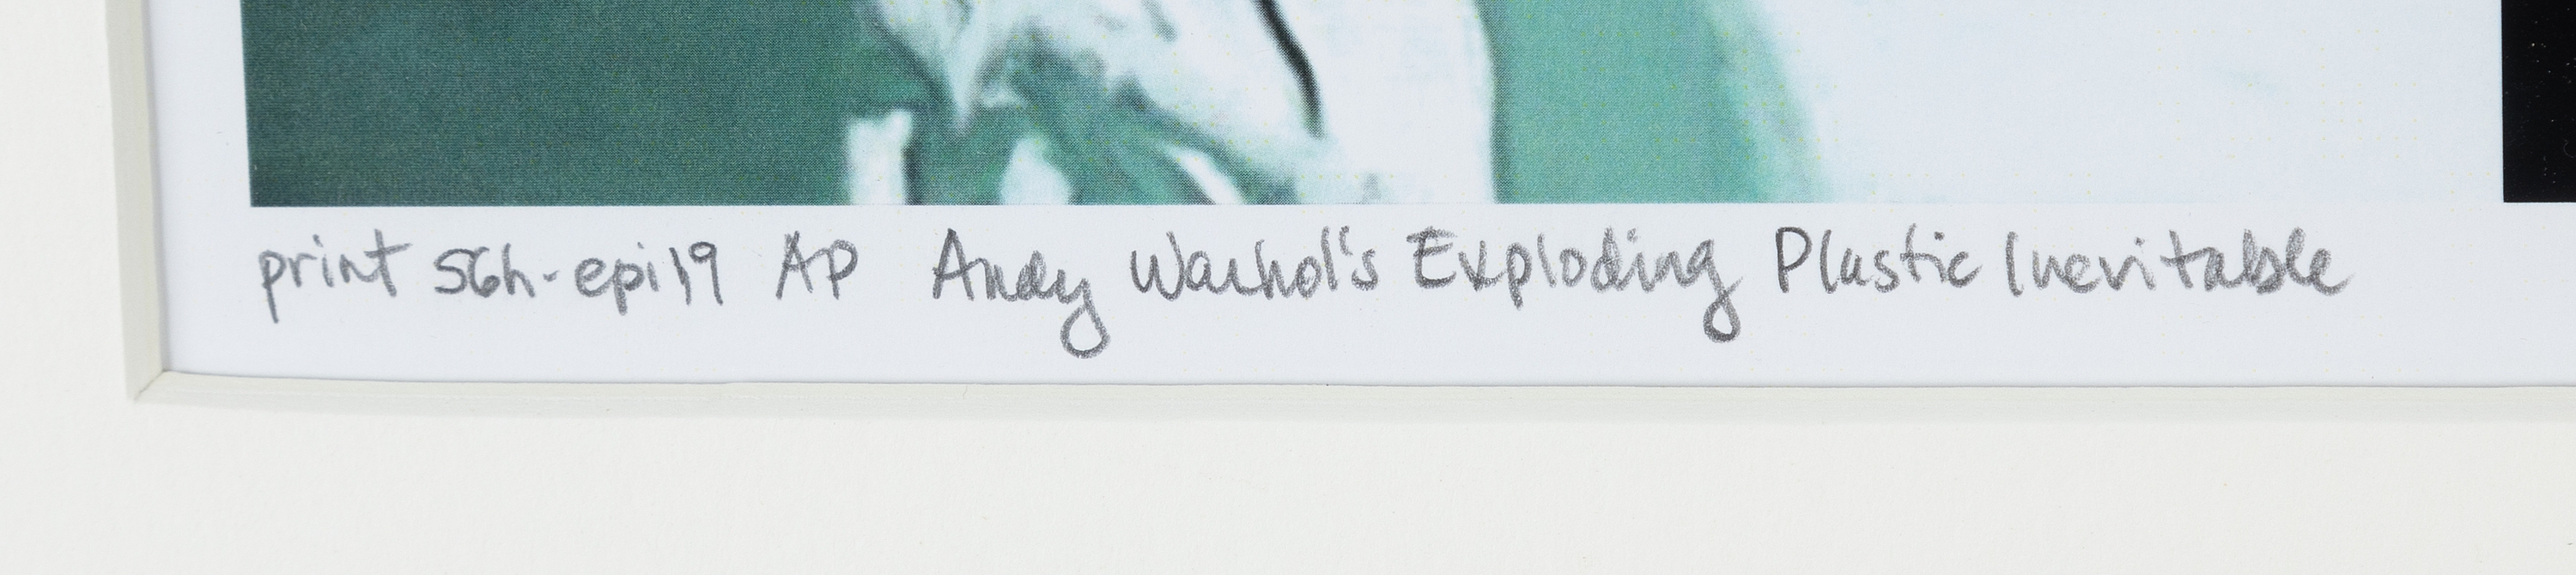 print 56h-epi19 AP Andy Warhol's Exploding Plastic Inevitable